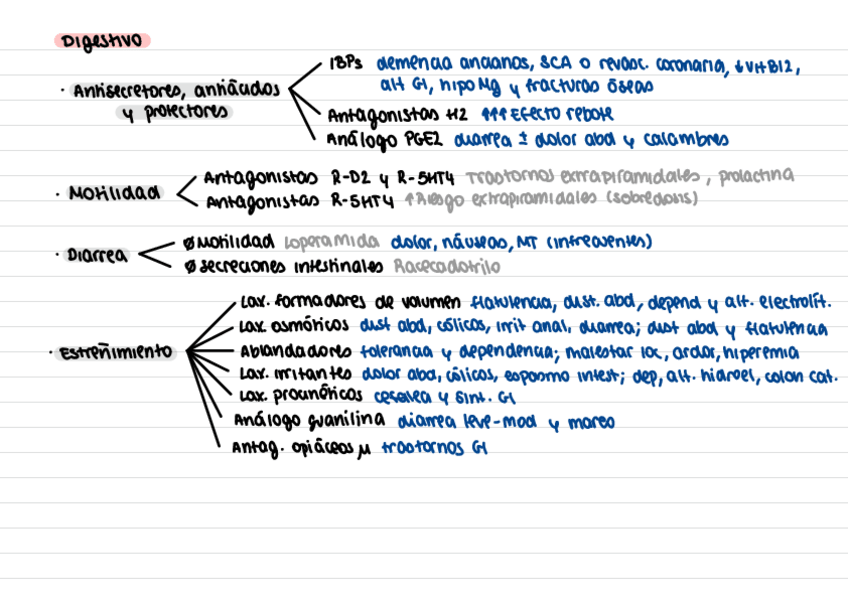 Digestivo
IBPs demencia ancianos, SCA o revasc. coronaria, ↓vitB12,
· Antisecretores, antiácidos
alt GI, hipoMg y fracturas óseas
y protectores
Antagonistas H2 ↑↑↑ Efecto rebote
Análogo PGE2 diarrea ± dolor abd y calambres
· Motilidad
Antagonistas R-D2 y R-5HT4 Trastornos extrapiramidales, prolactina
Antagonistas R-5HT4 ↑Riesgo extrapiramidales (sobredosis)
· Diarrea
Ø Motilidad Loperamida dolor, náuseas, MT (infrecuentes)
Ø secreciones intestinales Racecadotrilo
· Estreñimiento
Lax. formadores de volumen flatulencia, dist. abd, depend y alt. electrolít.
Lax. osmóticos dist abd, cólicos, irrit anal, diarrea; dist abd y flatulencia
Ablandadores tolerancia y dependencia; malestar loc, ardor, hiperemia
Lax. irritantes dolor abd, cólicos, espasmo intest; dep, alt. hidroel, colon cat.
Lax. procinéticos cefalea y sínt. GI
Análogo guanilina diarrea leve-mod y mareo
Antag. opiáceos μ trastornos GI